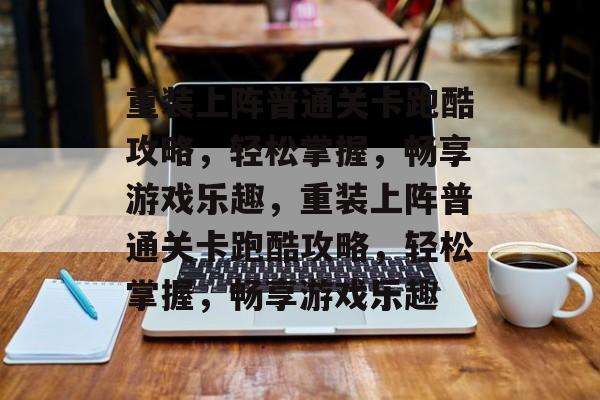 重装上阵普通关卡跑酷
攻略，轻松掌握，畅享
游戏乐趣，重装上阵普
通关卡跑酷攻略，轻松
掌握，畅享游戏乐趣